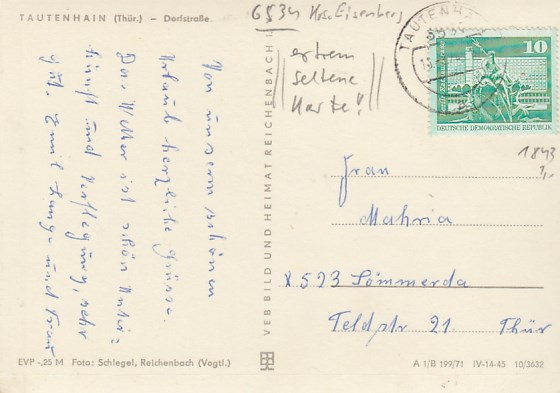 TAUTENHAIN (Thür.) — Dorfstraße
6534 Krs. Eisenberg
extrem
seltene
Karte!
TAUTENHAIN
10
DEUTSCHE DEMOKRATISCHE REPUBLIK
1843
1,-
Von unserm schönen
Urlaub herzliche Grüsse.
Das Wetter ist schön Unter=
kunft und Verpflegung, sehr
gut.
VEB BILD UND HEIMAT REICHENBACH
Frau
Mahria
X 523 Sömmerda
Feldstr 21. Thür
EVP -,25 M Foto: Schlegel, Reichenbach (Vogtl.)
A 1/B 199/71 IV-14-45 10/3632